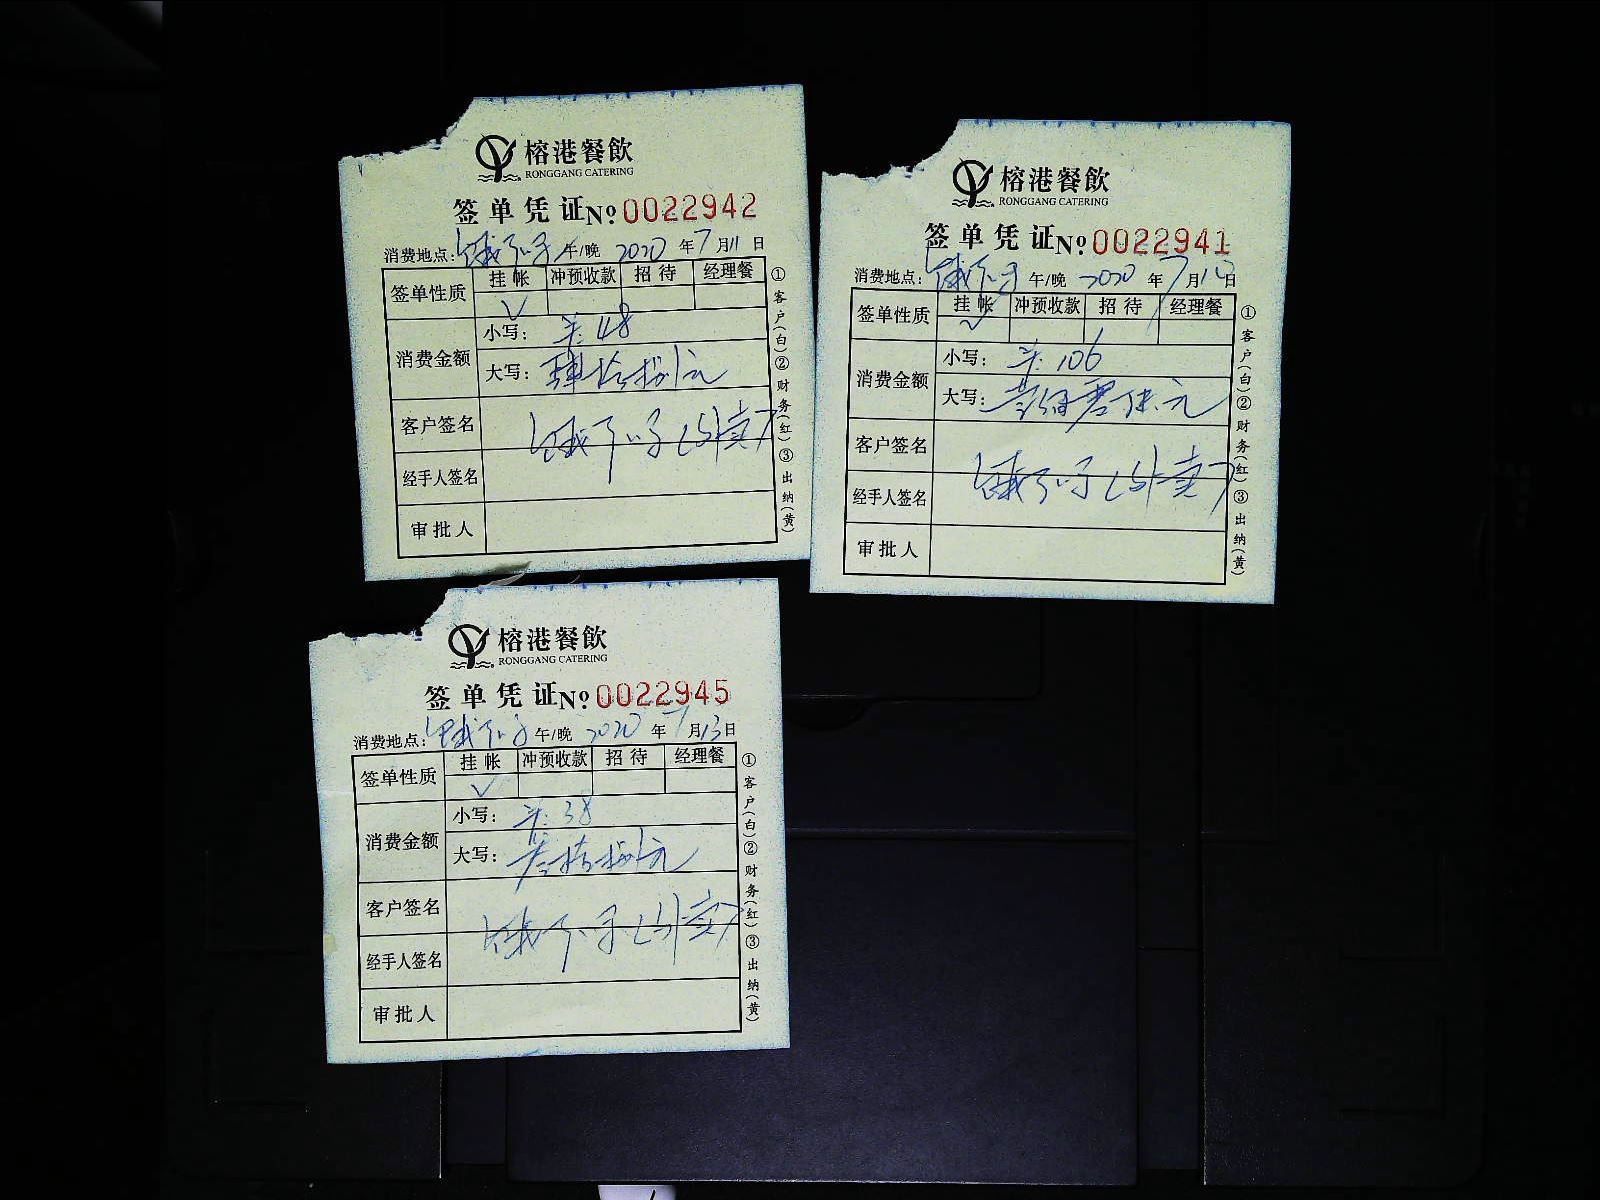 榕港餐飲
RONGGANG CATERING
签单凭证 No 0022942
消费地点：饿了么 午/晚 2020 年 7 月 11 日
签单性质 挂帐 冲预收款 招待 经理餐
✓
消费金额 小写：¥: 48
大写：肆拾捌元
客户签名 饿了么(外卖)
经手人签名
审批人
①客户(白)②财务(红)③出纳(黄)
榕港餐飲
RONGGANG CATERING
签单凭证 No 0022941
消费地点：饿了么 午/晚 2020 年 7 月 日
签单性质 挂帐 冲预收款 招待 经理餐
✓
消费金额 小写：¥: 106
大写：壹佰零陆元
客户签名
经手人签名 饿了么(外卖)
审批人
①客户(白)②财务(红)③出纳(黄)
榕港餐飲
RONGGANG CATERING
签单凭证 No 0022945
消费地点：饿了么 午/晚 2020 年 7 月 13 日
签单性质 挂帐 冲预收款 招待 经理餐
✓
消费金额 小写：¥: 38
大写：叁拾捌元
客户签名 饿了么(外卖)
经手人签名
审批人
①客户(白)②财务(红)③出纳(黄)